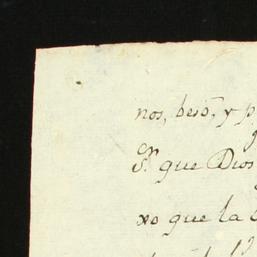 nos, besó, y p
Sr. que Dios
xo que la